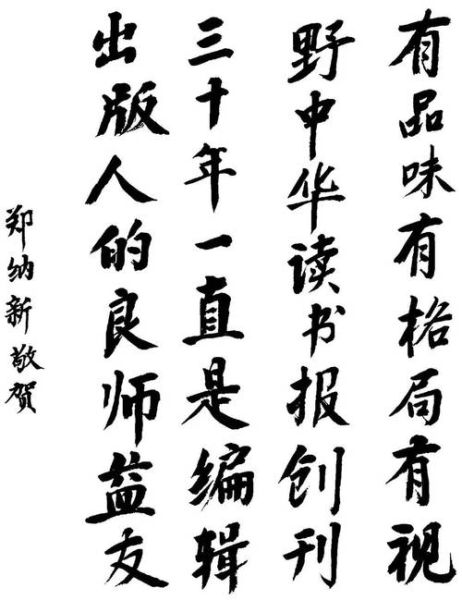 有品味有格局有视
野中华读书报创刊
三十年一直是编辑
出版人的良师益友
郑纳新敬贺